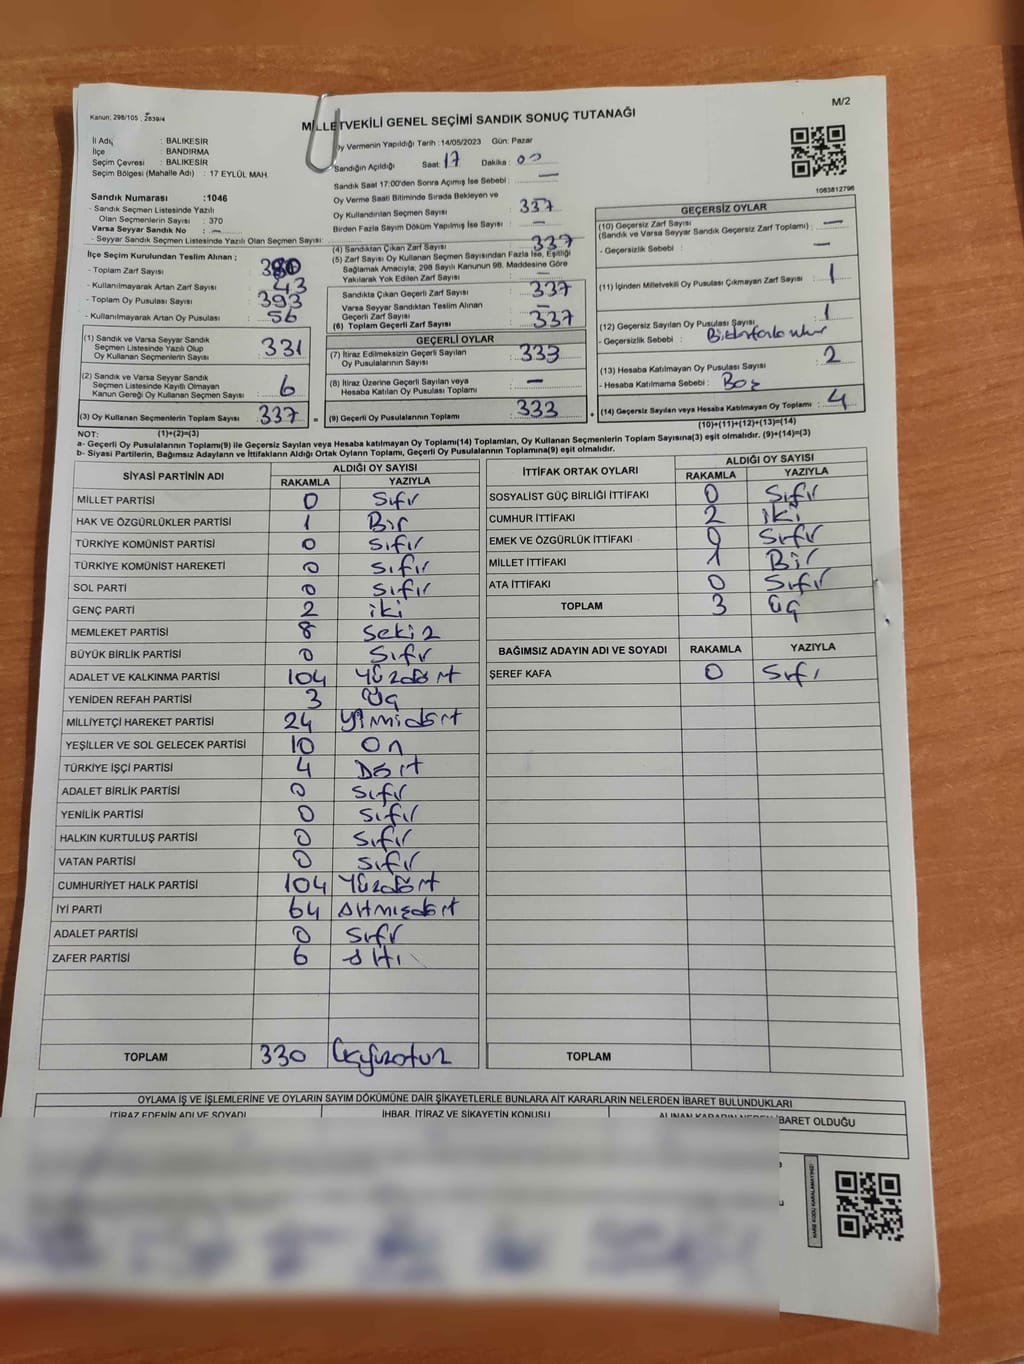 M/2
Kanun: 298/105 , 2839/4
MİLLETVEKİLİ GENEL SEÇİMİ SANDIK SONUÇ TUTANAĞI
İl Adı : BALIKESİR
İlçe : BANDIRMA
Seçim Çevresi : BALIKESİR
Seçim Bölgesi (Mahalle Adı) : 17 EYLÜL MAH.
Oy Vermenin Yapıldığı Tarih : 14/05/2023 Gün: Pazar
Sandığın Açıldığı Saat: 17 Dakika : 00
Sandık Saat 17:00'den Sonra Açımış İse Sebebi : —
1083812796
Sandık Numarası :1046
- Sandık Seçmen Listesinde Yazılı
Olan Seçmenlerin Sayısı : 370
Varsa Seyyar Sandık No : —
- Seyyar Sandık Seçmen Listesinde Yazılı Olan Seçmen Sayısı:
Oy Verme Saati Bitiminde Sırada Bekleyen ve
Oy Kullandırılan Seçmen Sayısı : 337
Birden Fazla Sayım Döküm Yapılmış İse Sayısı : —
İlçe Seçim Kurulundan Teslim Alınan ;
- Toplam Zarf Sayısı : 380
- Kullanılmayarak Artan Zarf Sayısı : 43
- Toplam Oy Pusulası Sayısı : 393
- Kullanılmayarak Artan Oy Pusulası : 56
(1) Sandık ve Varsa Seyyar Sandık
Seçmen Listesinde Yazılı Olup
Oy Kullanan Seçmenlerin Sayısı : 331
(2) Sandık ve Varsa Seyyar Sandık
Seçmen Listesinde Kayıtlı Olmayan
Kanun Gereği Oy Kullanan Seçmen Sayısı : 6
(3) Oy Kullanan Seçmenlerin Toplam Sayısı : 337
(1)+(2)=(3)
(4) Sandıktan Çıkan Zarf Sayısı : 337
(5) Zarf Sayısı Oy Kullanan Seçmen Sayısından Fazla İse, Eşitliği
Sağlamak Amacıyla, 298 Sayılı Kanunun 98. Maddesine Göre
Yakılarak Yok Edilen Zarf Sayısı : —
Sandıkta Çıkan Geçerli Zarf Sayısı : 337
Varsa Seyyar Sandıktan Teslim Alınan
Geçerli Zarf Sayısı : —
(6) Toplam Geçerli Zarf Sayısı : 337
GEÇERLİ OYLAR
(7) İtiraz Edilmeksizin Geçerli Sayılan
Oy Pusulalarının Sayısı : 333
(8) İtiraz Üzerine Geçerli Sayılan veya
Hesaba Katılan Oy Pusulası Toplamı : —
= (9) Geçerli Oy Pusulalarının Toplamı : 333
GEÇERSİZ OYLAR
(10) Geçersiz Zarf Sayısı : —
(Sandık ve Varsa Seyyar Sandık Geçersiz Zarf Toplamı)
- Geçersizlik Sebebi : —
(11) İçinden Milletvekili Oy Pusulası Çıkmayan Zarf Sayısı : 1
(12) Geçersiz Sayılan Oy Pusulası Sayısı : 1
- Geçersizlik Sebebi :
(13) Hesaba Katılmayan Oy Pusulası Sayısı : 2
- Hesaba Katılmama Sebebi : Boş
+ (14) Geçersiz Sayılan veya Hesaba Katılmayan Oy Toplamı : 4
(10)+(11)+(12)+(13)=(14)
NOT:
a- Geçerli Oy Pusulalarının Toplamı(9) ile Geçersiz Sayılan veya Hesaba katılmayan Oy Toplamı(14) Toplamları, Oy Kullanan Seçmenlerin Toplam Sayısına(3) eşit olmalıdır. (9)+(14)=(3)
b- Siyasi Partilerin, Bağımsız Adayların ve İttifakların Aldığı Ortak Oyların Toplamı, Geçerli Oy Pusulalarının Toplamına(9) eşit olmalıdır.
SİYASİ PARTİNİN ADI ALDIĞI OY SAYISI
RAKAMLA YAZIYLA
MİLLET PARTİSİ 0 Sıfır
HAK VE ÖZGÜRLÜKLER PARTİSİ 1 Bir
TÜRKİYE KOMÜNİST PARTİSİ 0 Sıfır
TÜRKİYE KOMÜNİST HAREKETİ 0 Sıfır
SOL PARTİ 0 Sıfır
GENÇ PARTİ 2 iki
MEMLEKET PARTİSİ 8 Sekiz
BÜYÜK BİRLİK PARTİSİ 0 Sıfır
ADALET VE KALKINMA PARTİSİ 104 Yüzdört
YENİDEN REFAH PARTİSİ 3 Üç
MİLLİYETÇİ HAREKET PARTİSİ 24 Yirmidört
YEŞİLLER VE SOL GELECEK PARTİSİ 10 On
TÜRKİYE İŞÇİ PARTİSİ 4 Dört
ADALET BİRLİK PARTİSİ 0 Sıfır
YENİLİK PARTİSİ 0 Sıfır
HALKIN KURTULUŞ PARTİSİ 0 Sıfır
VATAN PARTİSİ 0 Sıfır
CUMHURİYET HALK PARTİSİ 104 Yüzdört
İYİ PARTİ 64 Altmışdört
ADALET PARTİSİ 0 Sıfır
ZAFER PARTİSİ 6 altı
TOPLAM 330 Üçyüzotuz
İTTİFAK ORTAK OYLARI ALDIĞI OY SAYISI
RAKAMLA YAZIYLA
SOSYALİST GÜÇ BİRLİĞİ İTTİFAKI 0 Sıfır
CUMHUR İTTİFAKI 2 iki
EMEK VE ÖZGÜRLÜK İTTİFAKI 0 Sıfır
MİLLET İTTİFAKI 1 Bir
ATA İTTİFAKI 0 Sıfır
TOPLAM 3 üç
BAĞIMSIZ ADAYIN ADI VE SOYADI RAKAMLA YAZIYLA
ŞEREF KAFA 0 Sıfı
TOPLAM
OYLAMA İŞ VE İŞLEMLERİNE VE OYLARIN SAYIM DÖKÜMÜNE DAİR ŞİKAYETLERLE BUNLARA AİT KARARLARIN NELERDEN İBARET BULUNDUKLARI
İTİRAZ EDENİN ADI VE SOYADI İHBAR, İTİRAZ VE ŞİKAYETİN KONUSU ALINAN KARARIN NEDEN İBARET OLDUĞU
KARE KODU KARALAMAYINIZ!